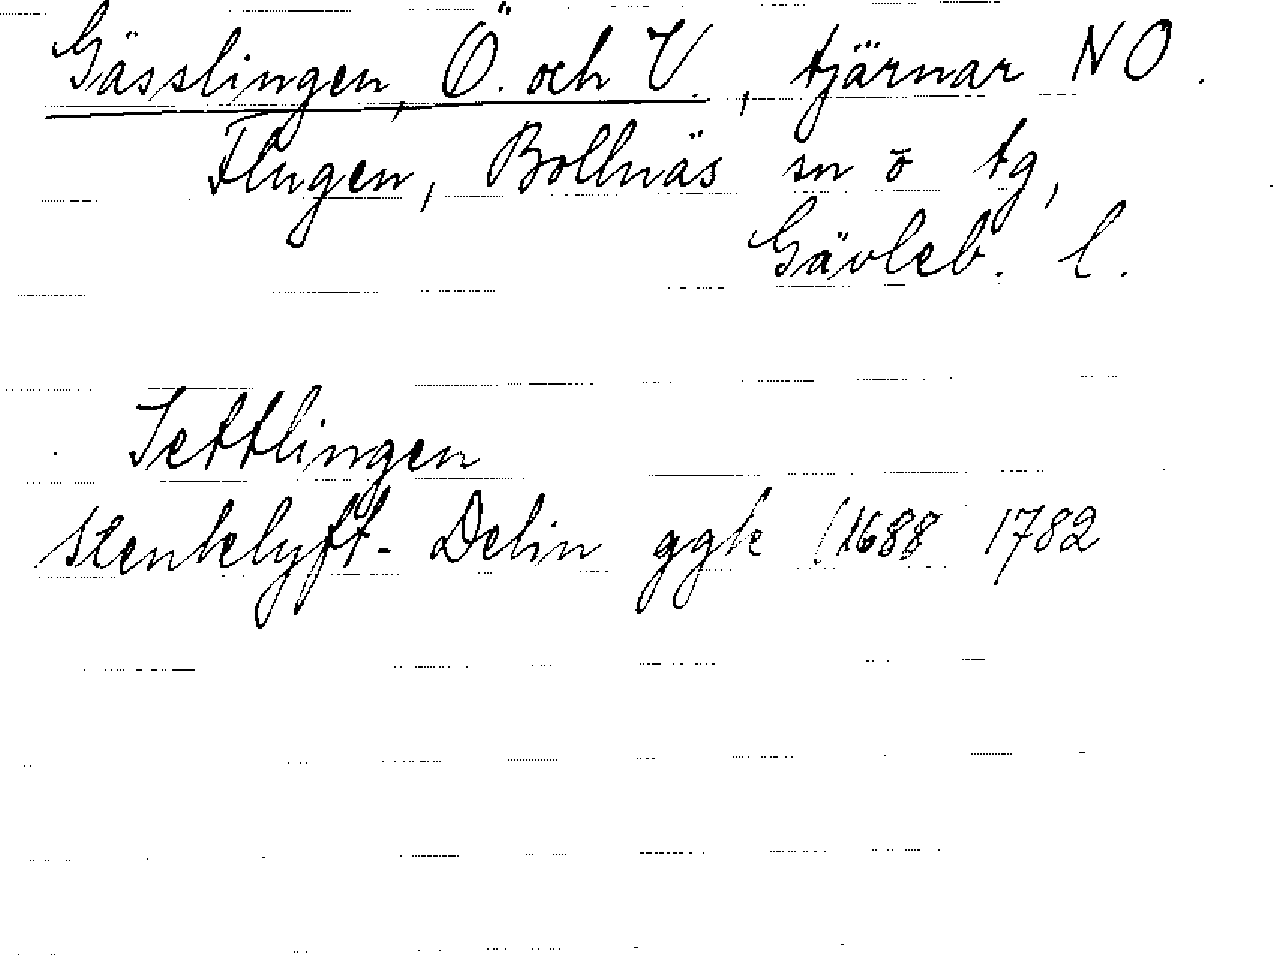 Gässlingen, Ö. och V., tjärnar NO.
Flugen, Bollnäs sn o tg,
Gävleb. l.
Settlingen
stenklyft- Delin ggk (1688 1782